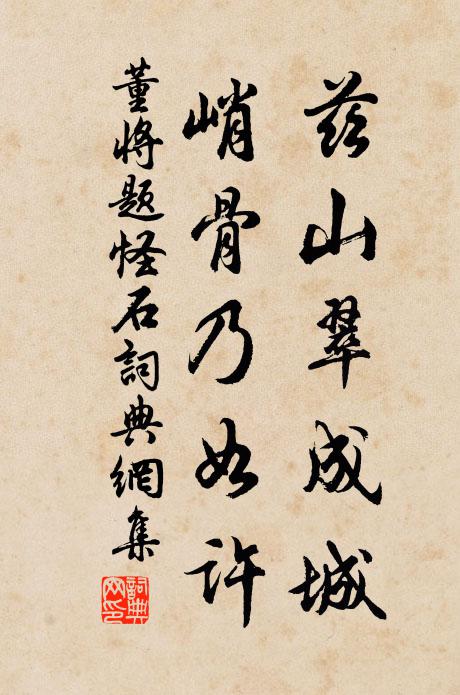 茲山翠成城
峭骨乃如許
董將題怪石詞典網集
詞典網印